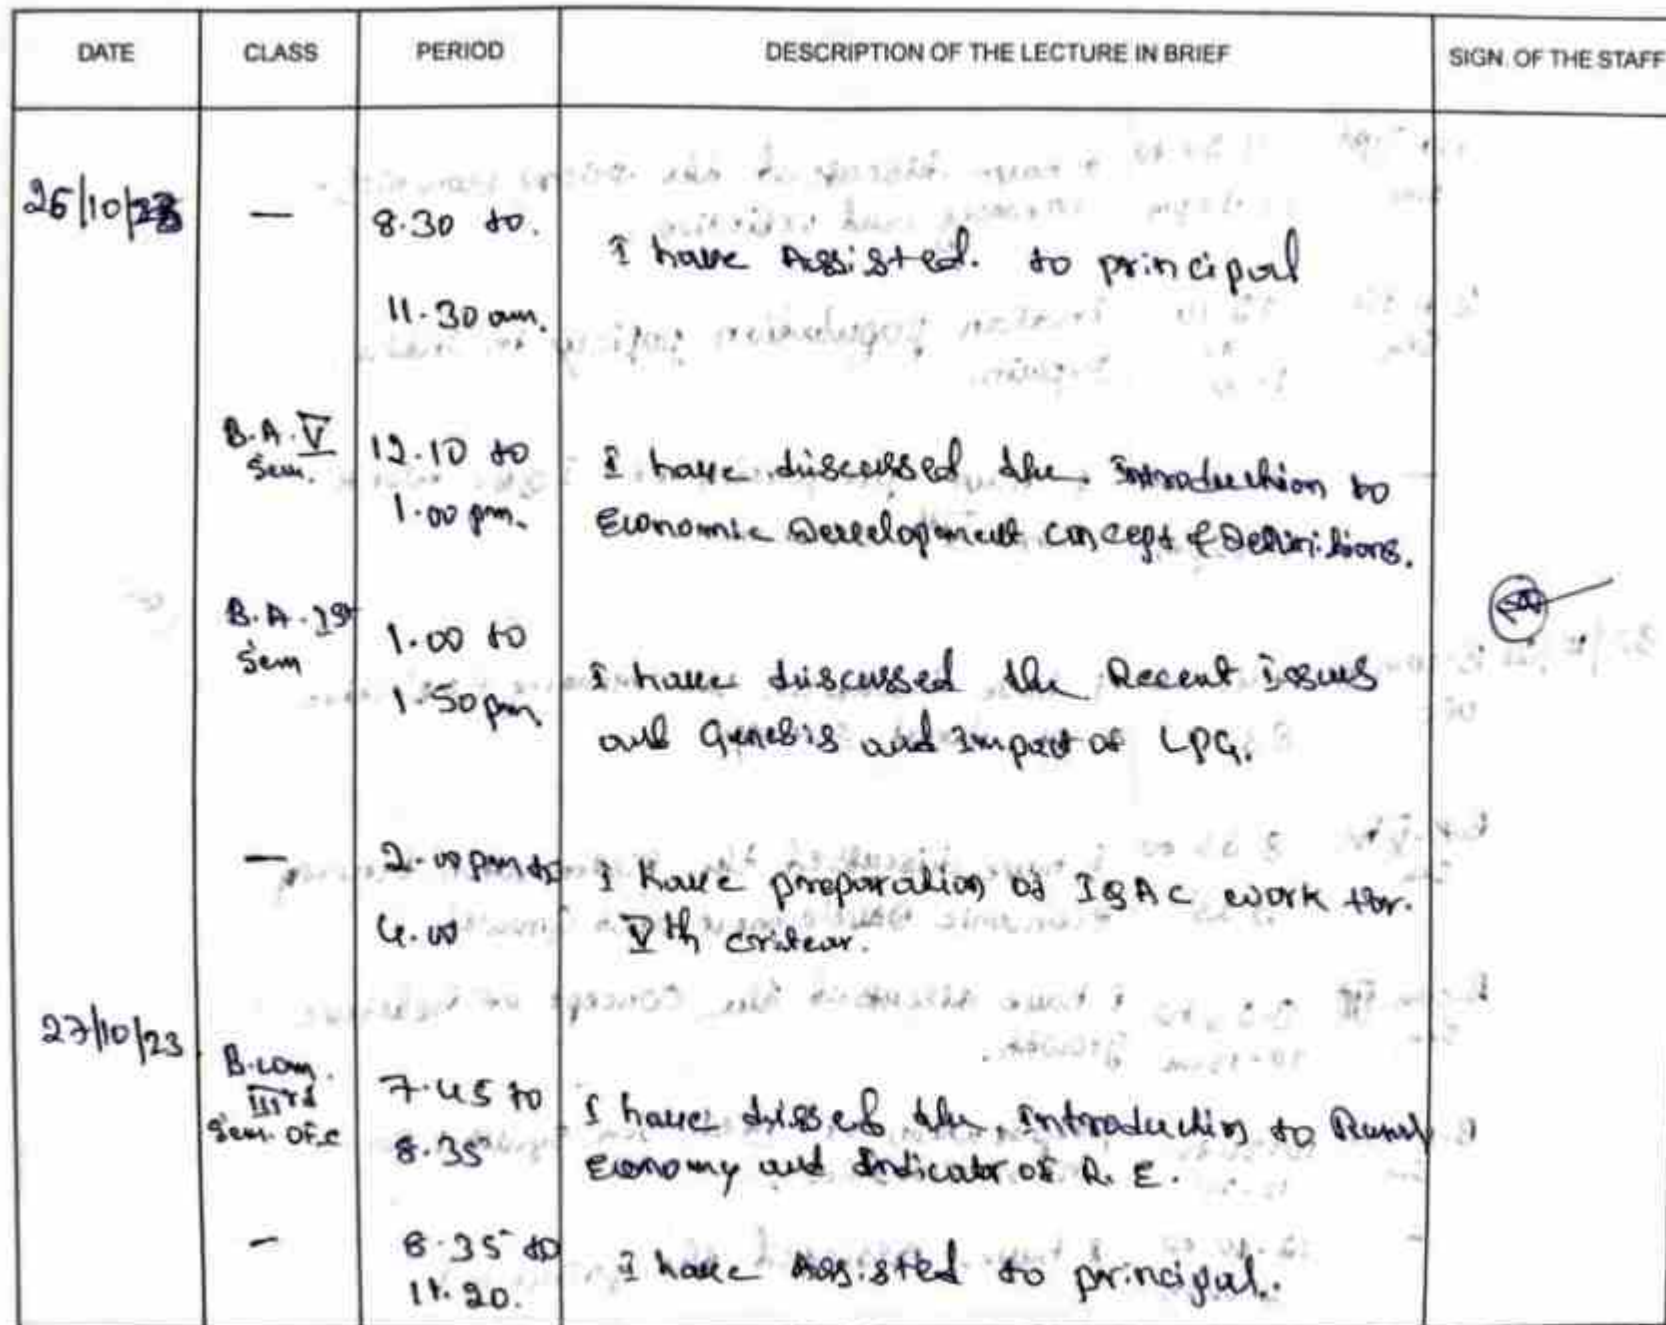 DATE CLASS PERIOD DESCRIPTION OF THE LECTURE IN BRIEF SIGN. OF THE STAFF
26/10/23 — 8.30 to.
I have Assisted. to principal
11.30 am.
B.A. V 12.10 to I have discussed the Introduction to
Sem. 1.00 pm. Economic Development concept & Definitions.
B.A. Ist 1.00 to
Sem 1.50 pm I have discussed the Recent Issues
and Genesis and Impact of LPG.
— 2.00 pm to I have preparation of IQAC work for.
4.00 Vth critear.
27/10/23
B.com. 7.45 to I have dissed the Introduction to Rural
IIIrd 8.35 Economy and Indicator of R.E.
Sem. OEC
— 8.35 to I have Assisted to principal.
11.20.